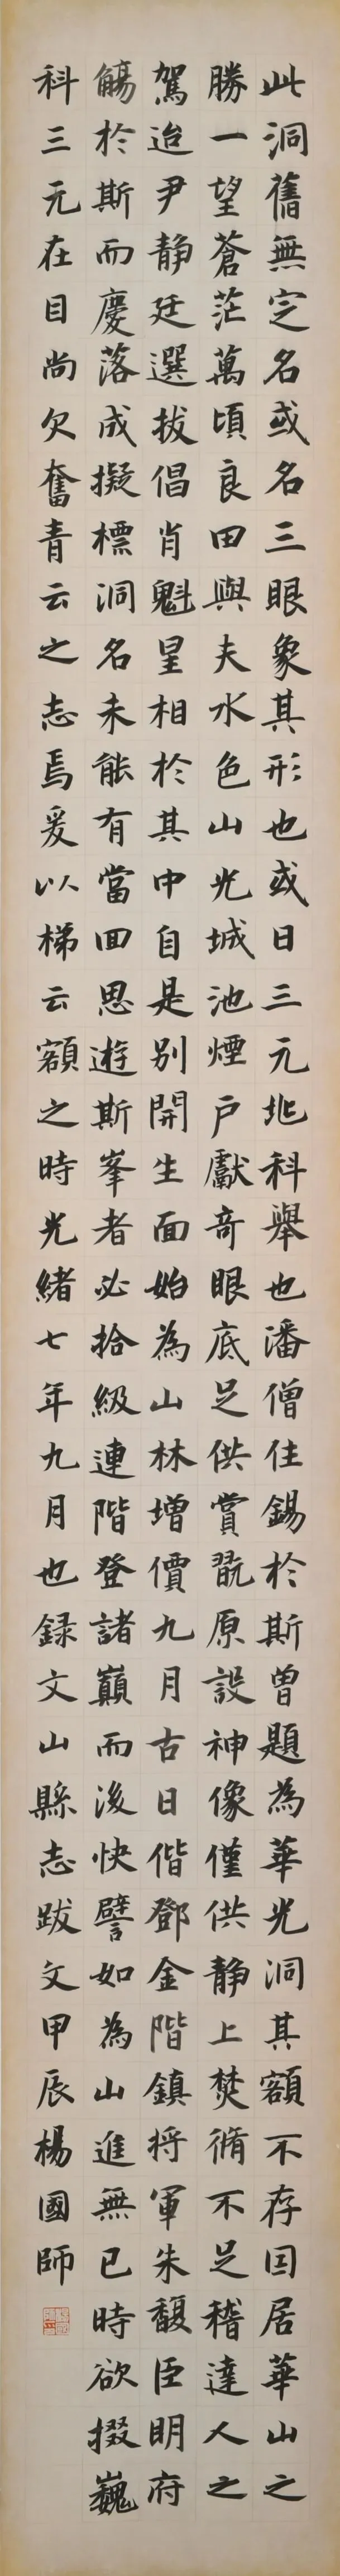 此洞舊無定名或名三眼象其形也或曰三元兆科舉也潘僧住錫於斯曾題為華光洞其額不存因居華山之
勝一望蒼茫萬頃良田與夫水色山光城池煙戶獻奇眼底足供賞翫原設神像僅供静上焚脩不足稽達人之
駕迨尹静廷選拔倡肖魁星相於其中自是別開生面始為山林增價九月古日偕鄧金階鎮将軍朱馥臣明府
觴於斯而慶落成擬標洞名未能有當回思遊斯峯者必拾級連階登諸巔而後快譬如為山進無已時欲掇巍
科三元在目尚欠奮青云之志焉爰以梯云額之時光緒七年九月也録文山縣志跋文甲辰楊國師